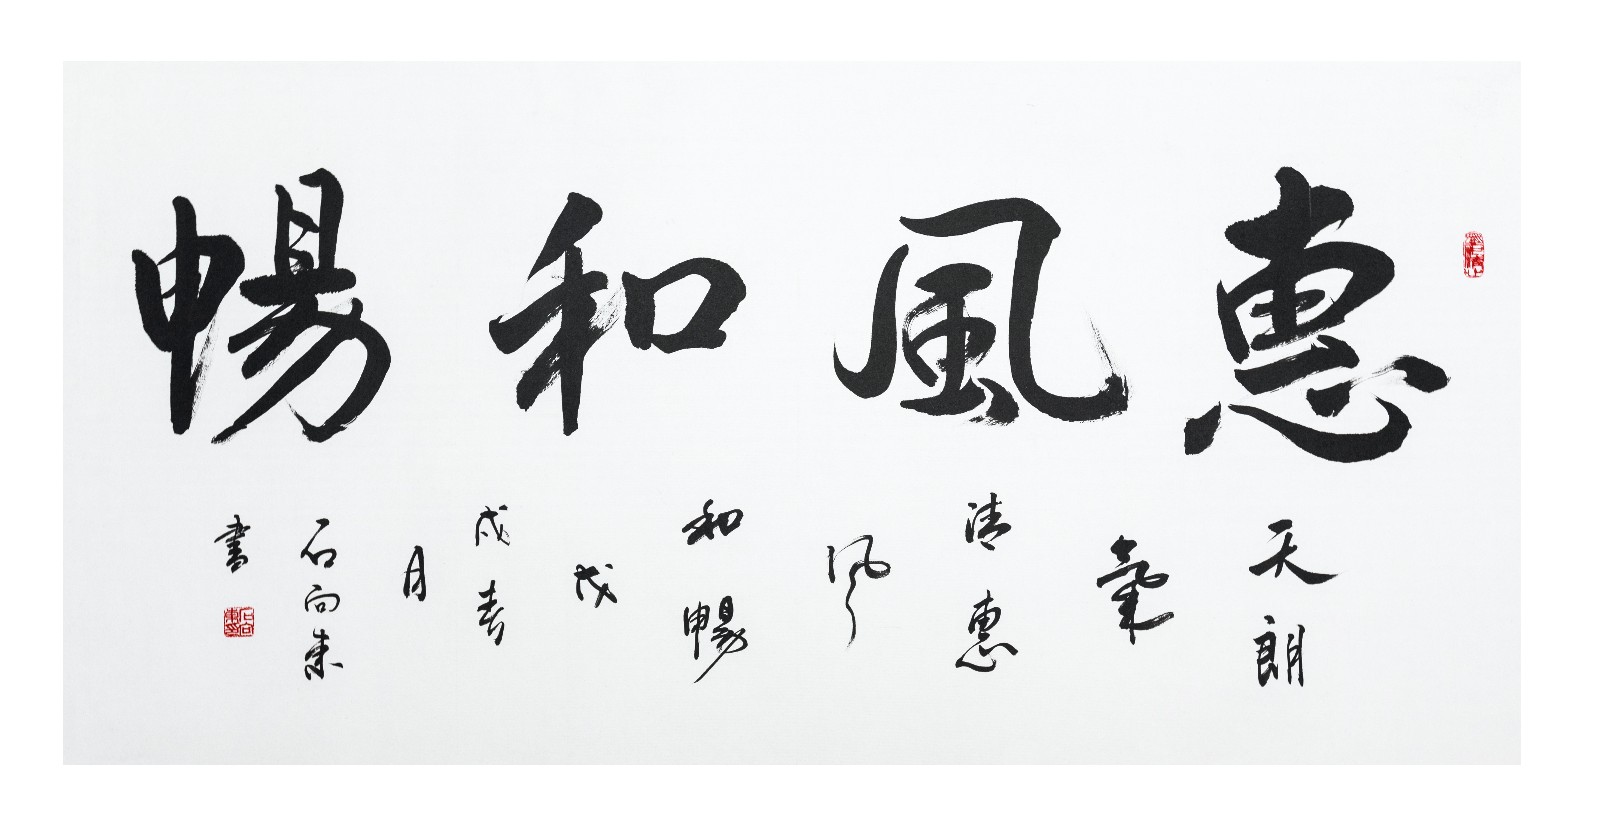 惠風和暢
天朗
氣
清惠
風
和暢
戊
戌春
月
石向東
書
石向東印